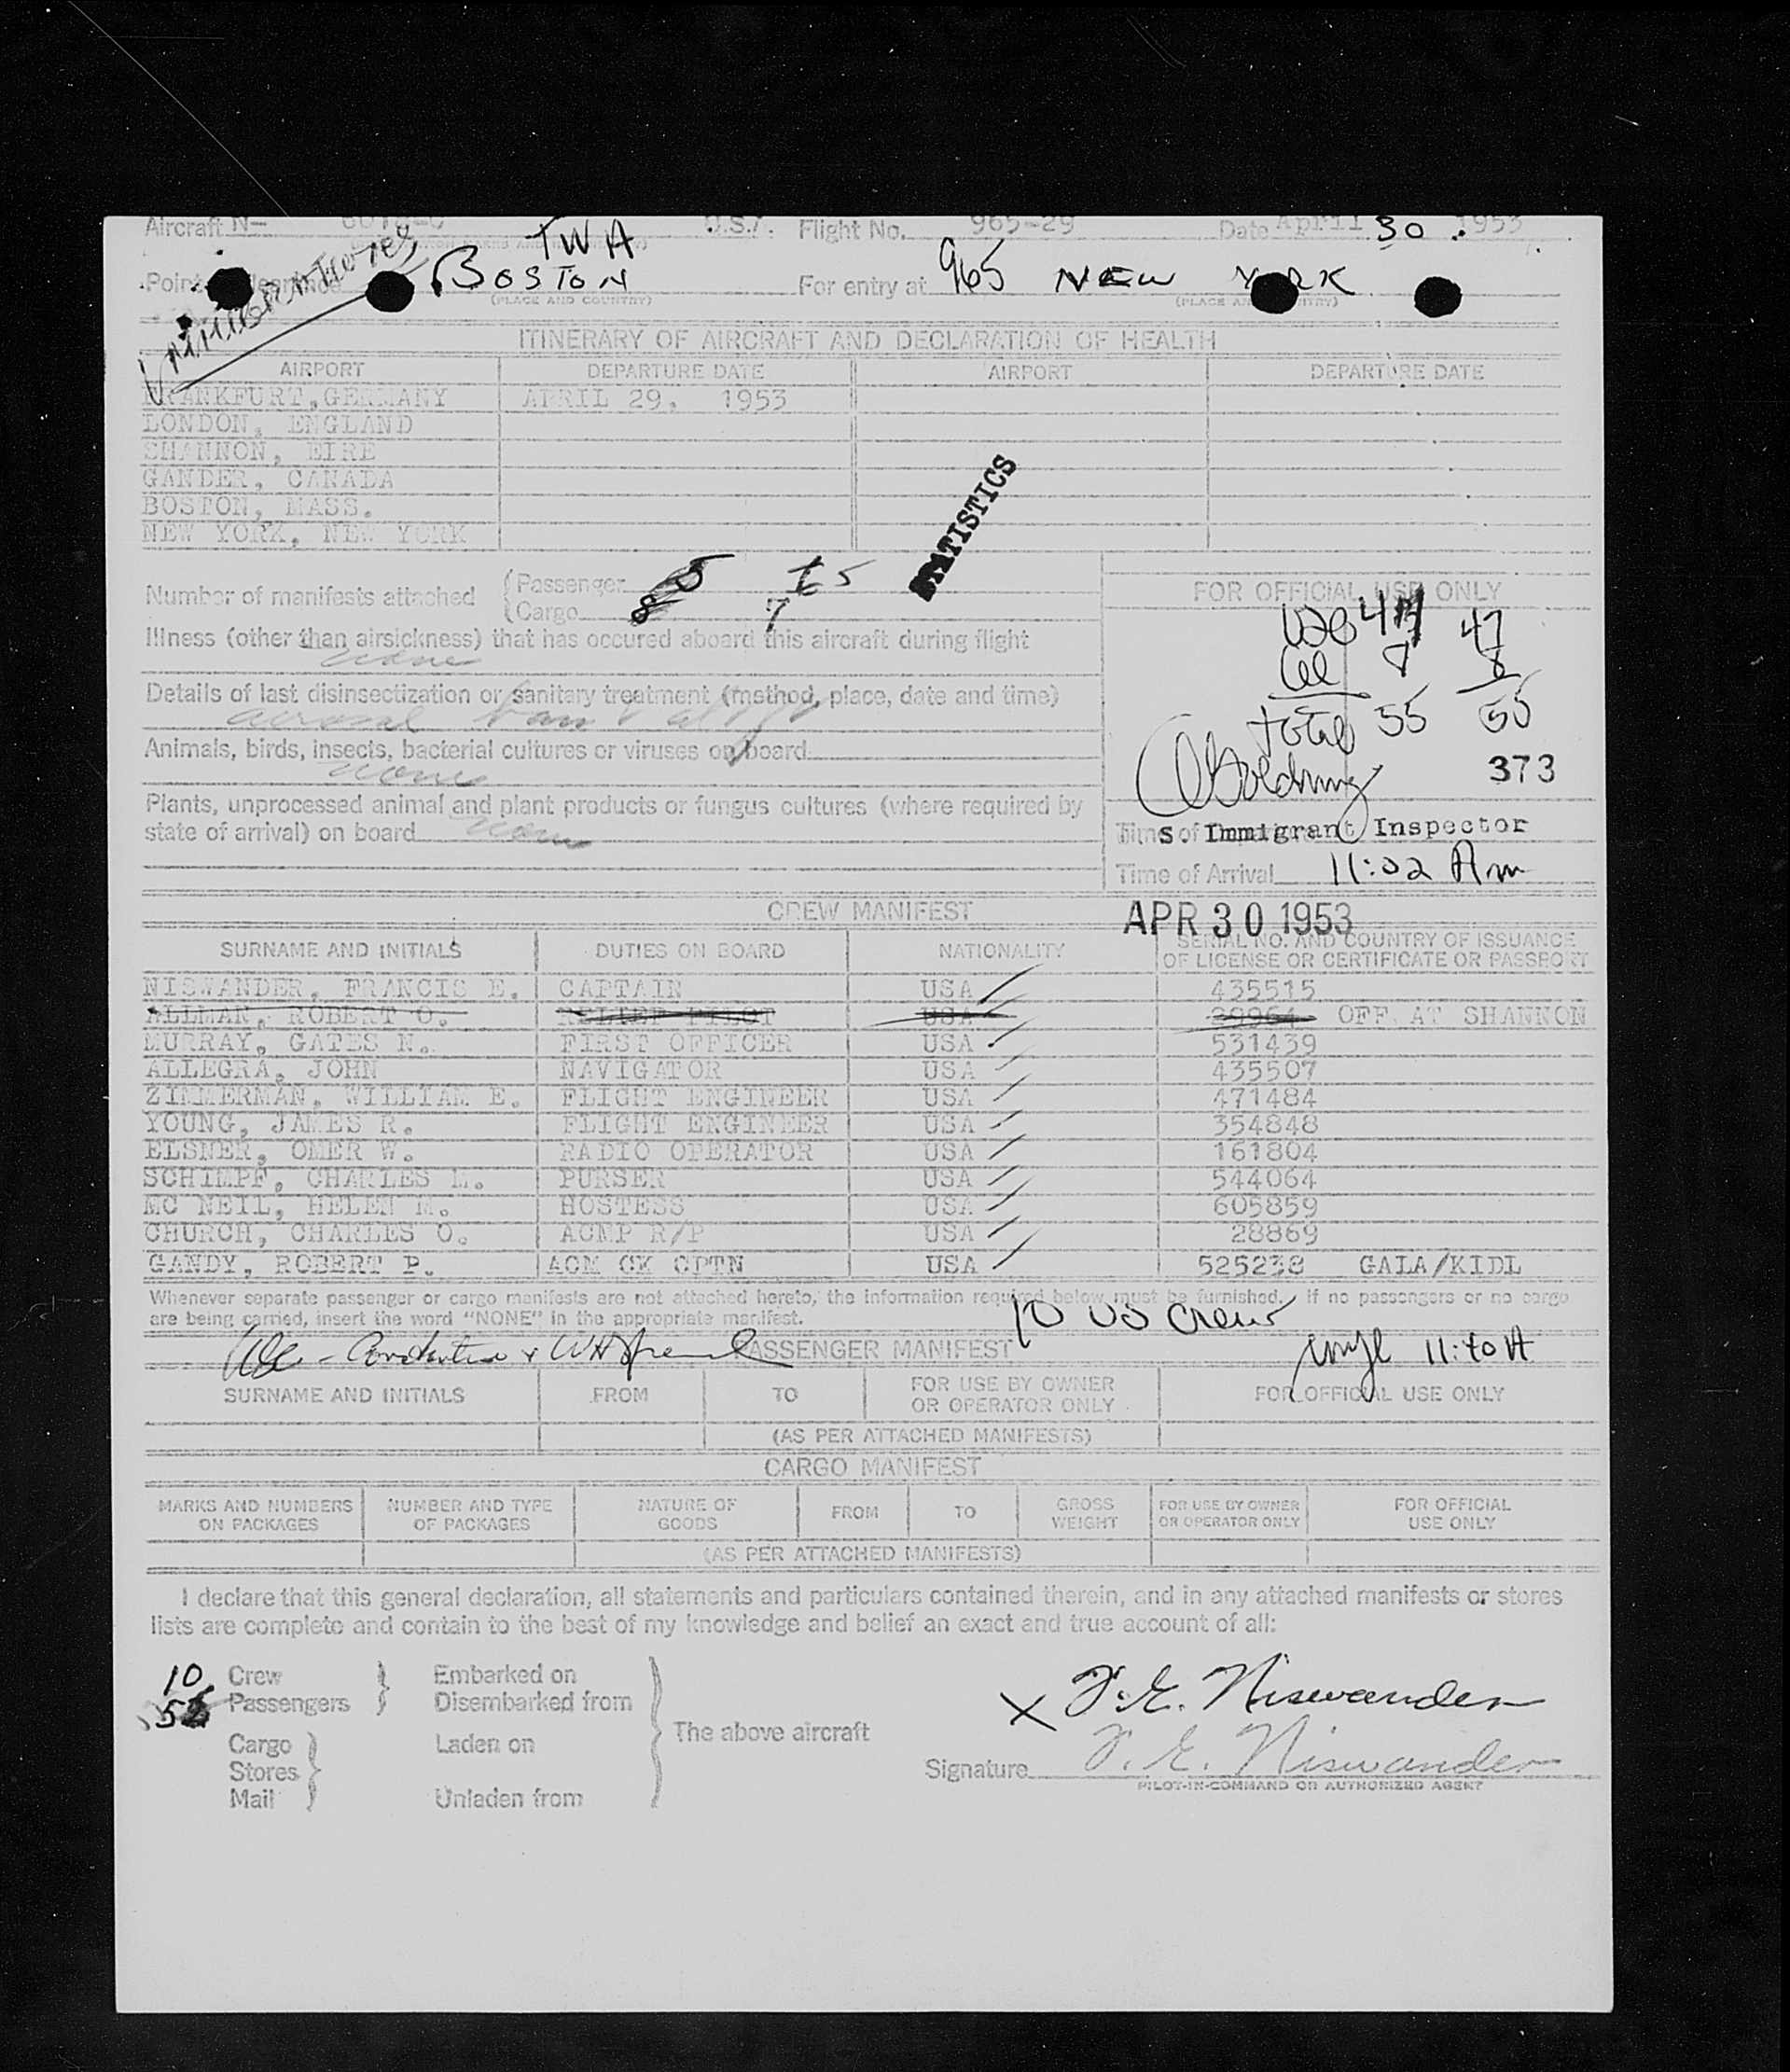 Aircraft N- U.S.. Flight No. 965-29 Date April 30. 1953
TWA
BOSTON For entry at 965 NEW YORK
(PLACE AND COUNTRY)
ITINERARY OF AIRCRAFT AND DECLARATION OF HEALTH
AIRPORT DEPARTURE DATE AIRPORT DEPARTURE DATE
FRANKFURT, GERMANY APRIL 29, 1953
LONDON, ENGLAND
SHANNON, EIRE
GANDER, CANADA
BOSTON, MASS.
NEW YORK, NEW YORK
STATISTICS
Number of manifests attached (Passenger
(Cargo 8 7
FOR OFFICIAL USE ONLY
47
8
Total 55 55
373
Illness (other than airsickness) that has occured aboard this aircraft during flight
none
Details of last disinsectization or sanitary treatment (method, place, date and time)
aerosol
Animals, birds, insects, bacterial cultures or viruses on board
none
Plants, unprocessed animal and plant products or fungus cultures (where required by
state of arrival) on board none
S. Immigrant Inspector
Time of Arrival 11:02 Am
CREW MANIFEST APR 30 1953
SURNAME AND INITIALS DUTIES ON BOARD NATIONALITY SERIAL NO. AND COUNTRY OF ISSUANCE
OF LICENSE OR CERTIFICATE OR PASSPORT
NISWANDER, FRANCIS E. CAPTAIN USA 435515
ALLMAN, ROBERT O. RELIEF PILOT USA OFF AT SHANNON
MURRAY, GATES N. FIRST OFFICER USA 531439
ALLEGRA, JOHN NAVIGATOR USA 435507
ZIMMERMAN, WILLIAM E. FLIGHT ENGINEER USA 471484
YOUNG, JAMES R. FLIGHT ENGINEER USA 354848
ELSNER, OMER W. RADIO OPERATOR USA 161804
SCHIMPF, CHARLES L. PURSER USA 544064
MC NEIL, HELEN M. HOSTESS USA 605859
CHURCH, CHARLES O. ACMP R/P USA 28869
GANDY, ROBERT P. ACM CK CPTN USA 525238 GALA/KIDL
Whenever separate passenger or cargo manifests are not attached hereto, the information required below must be furnished. If no passengers or no cargo
are being carried, insert the word "NONE" in the appropriate manifest.
10 US Crew
PASSENGER MANIFEST 11:40 A
SURNAME AND INITIALS FROM TO FOR USE BY OWNER
OR OPERATOR ONLY FOR OFFICIAL USE ONLY
(AS PER ATTACHED MANIFESTS)
CARGO MANIFEST
MARKS AND NUMBERS
ON PACKAGES NUMBER AND TYPE
OF PACKAGES NATURE OF
GOODS FROM TO GROSS
WEIGHT FOR USE BY OWNER
OR OPERATOR ONLY FOR OFFICIAL
USE ONLY
(AS PER ATTACHED MANIFESTS)
I declare that this general declaration, all statements and particulars contained therein, and in any attached manifests or stores
lists are complete and contain to the best of my knowledge and belief an exact and true account of all:
10 Crew Embarked on
Passengers Disembarked from
The above aircraft
Cargo Laden on
Stores
Mail Unladen from
X F. E. Niswander
Signature F. E. Niswander
PILOT-IN-COMMAND OR AUTHORIZED AGENT